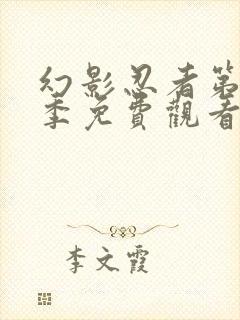 幻影忍者第
季免費觀看
李文霞